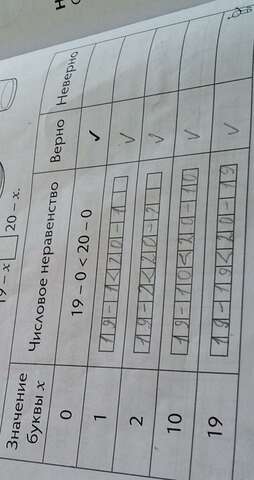 19 – x □ 20 – x.
Значение буквы x Числовое неравенство Верно Неверно
0 19 – 0 < 20 – 0 ✓
1 19-1<20-1 ✓
2 19-2<20-2 ✓
10 19-10<20-10 ✓
19 19-19<20-19 ✓